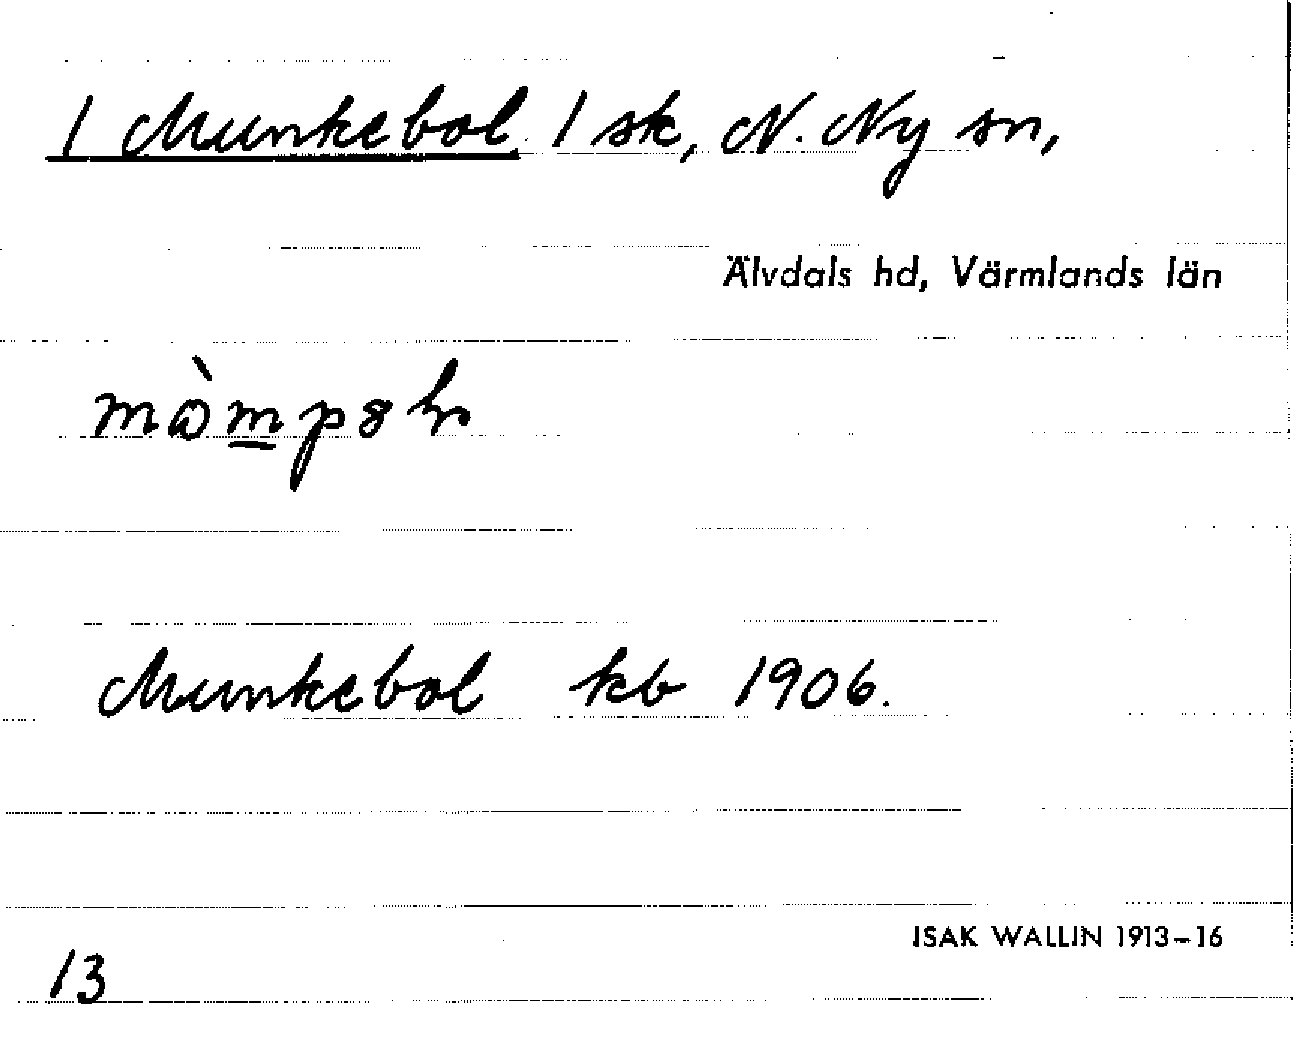 1 Munkebol 1 sk, N. Ny sn,
Älvdals hd, Värmlands län
Munkebol kb 1906.
ISAK WALLIN 1913-16
13